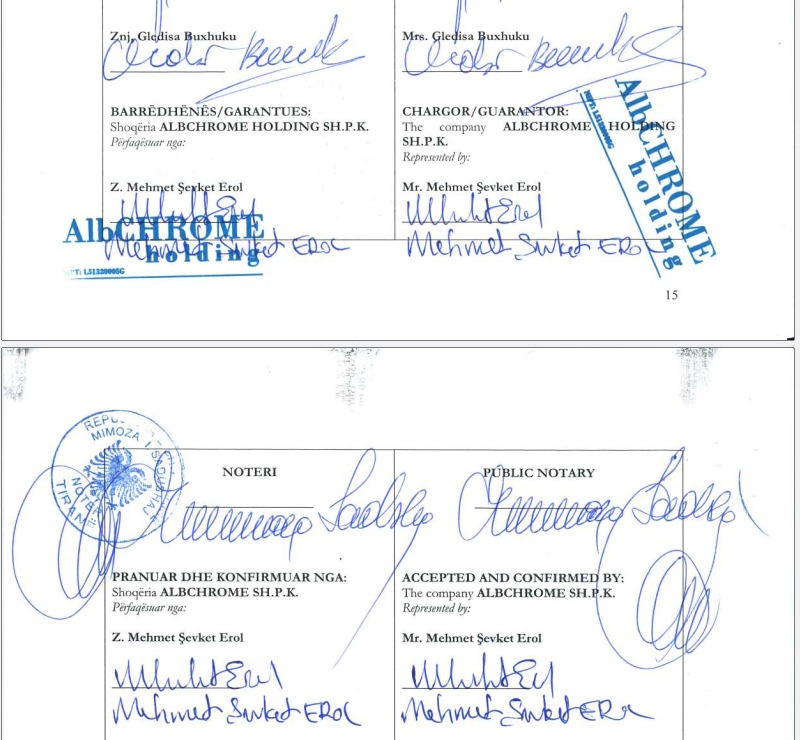 Znj. Gledisa Buxhuku
Mrs. Gledisa Buxhuku
BARRËDHËNËS/GARANTUES:
Shoqëria ALBCHROME HOLDING SH.P.K.
Përfaqësuar nga:
Z. Mehmet Şevket Erol
AlbCHROME
holding
Mehmet Şevket EROL
CHARGOR/GUARANTOR:
The company ALBCHROME HOLDING
SH.P.K.
Represented by:
Mr. Mehmet Şevket Erol
Mehmet Şevket EROL
AlbCHROME
holding
15
MIMOZA
NOTER
TIRANË
NOTERI
PRANUAR DHE KONFIRMUAR NGA:
Shoqëria ALBCHROME SH.P.K.
Përfaqësuar nga:
Z. Mehmet Şevket Erol
Mehmet Şevket EROL
PUBLIC NOTARY
ACCEPTED AND CONFIRMED BY:
The company ALBCHROME SH.P.K.
Represented by:
Mr. Mehmet Şevket Erol
Mehmet Şevket EROL